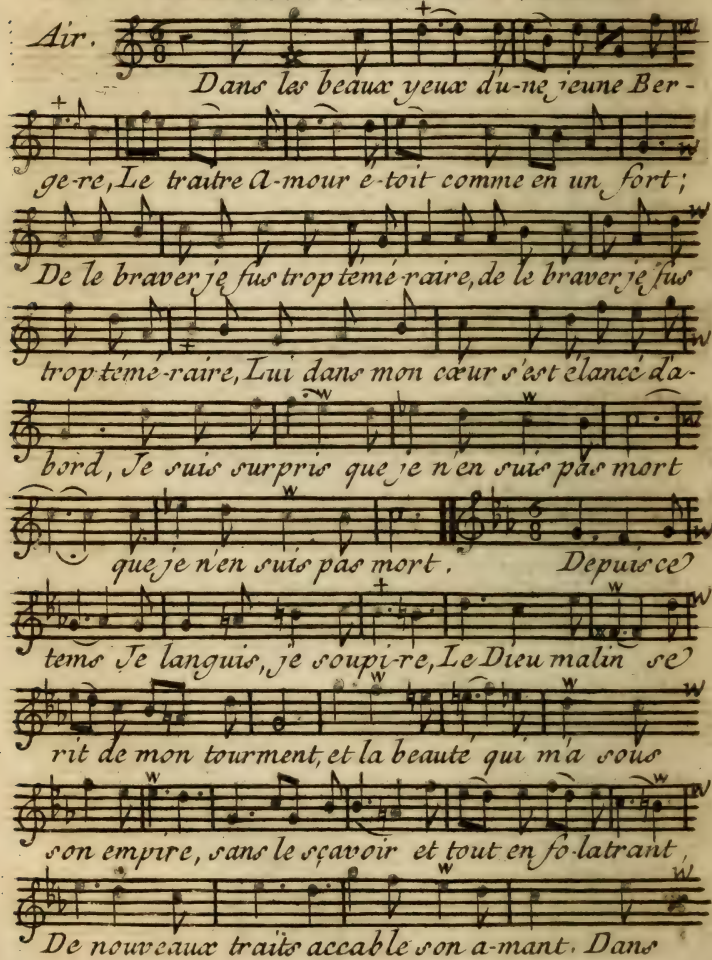 Air.
Dans les beaux yeux d'u-ne jeune Ber-
ge-re, Le traitre A-mour é-toit comme en un fort;
De le braver je fus trop témé-raire, de le braver je fus
trop témé-raire, Lui dans mon cœur s'est élancé d'a-
bord, Je suis surpris que je n'en suis pas mort
que je n'en suis pas mort. Depuis ce
tems Je languis, je soupi-re, Le Dieu malin se
rit de mon tourment, et la beauté qui m'a sous
son empire, sans le sçavoir et tout en fo-latrant,
De nouveaux traits accable son a-mant. Dans